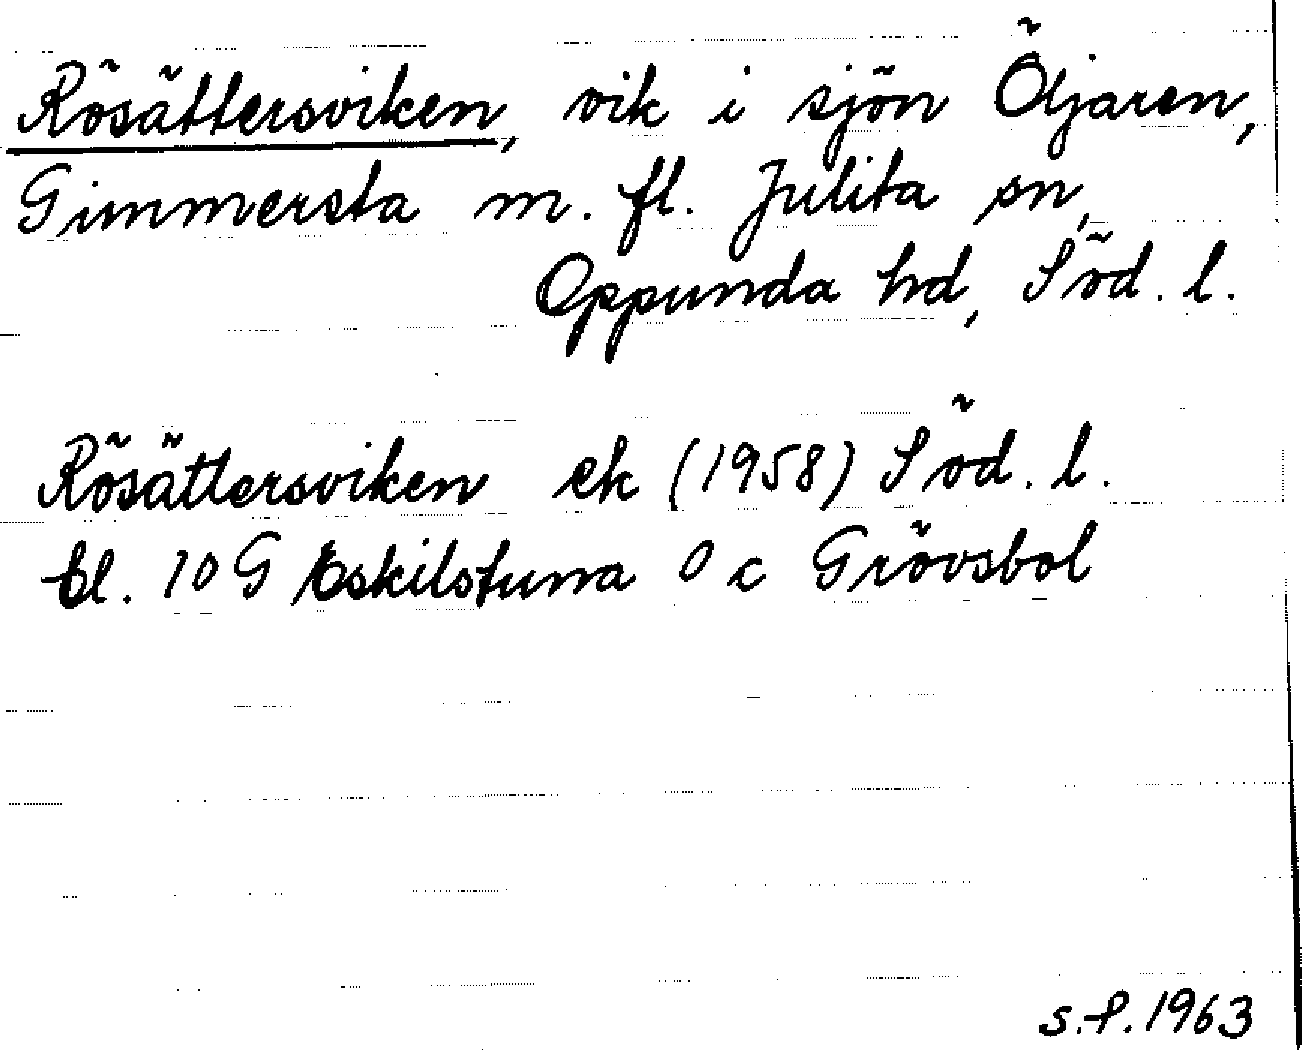 Rösättersviken, vik i sjön Öljaren,
Gimmersta m. fl. Julita sn,
Oppunda hd, Söd. l.
Rösättersviken ek (1958) Söd. l.
bl. 10 G Eskilstuna 0 c Grövsbol
s.-P. 1963